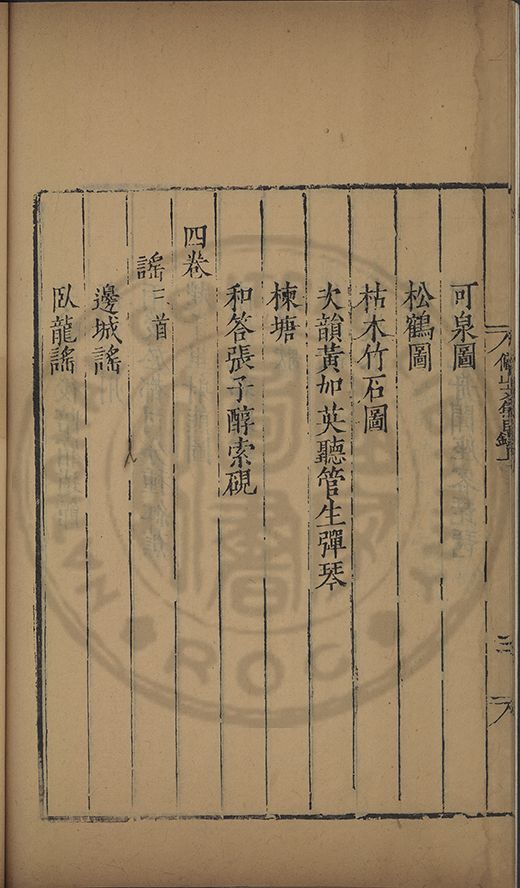 可泉圖
松鶴圖
枯木竹石圖
次韻黃加英聽管生彈琴
楝塘
和答張子醇索硯
四卷
謠二首
邊城謠
臥龍謠
三
ROC